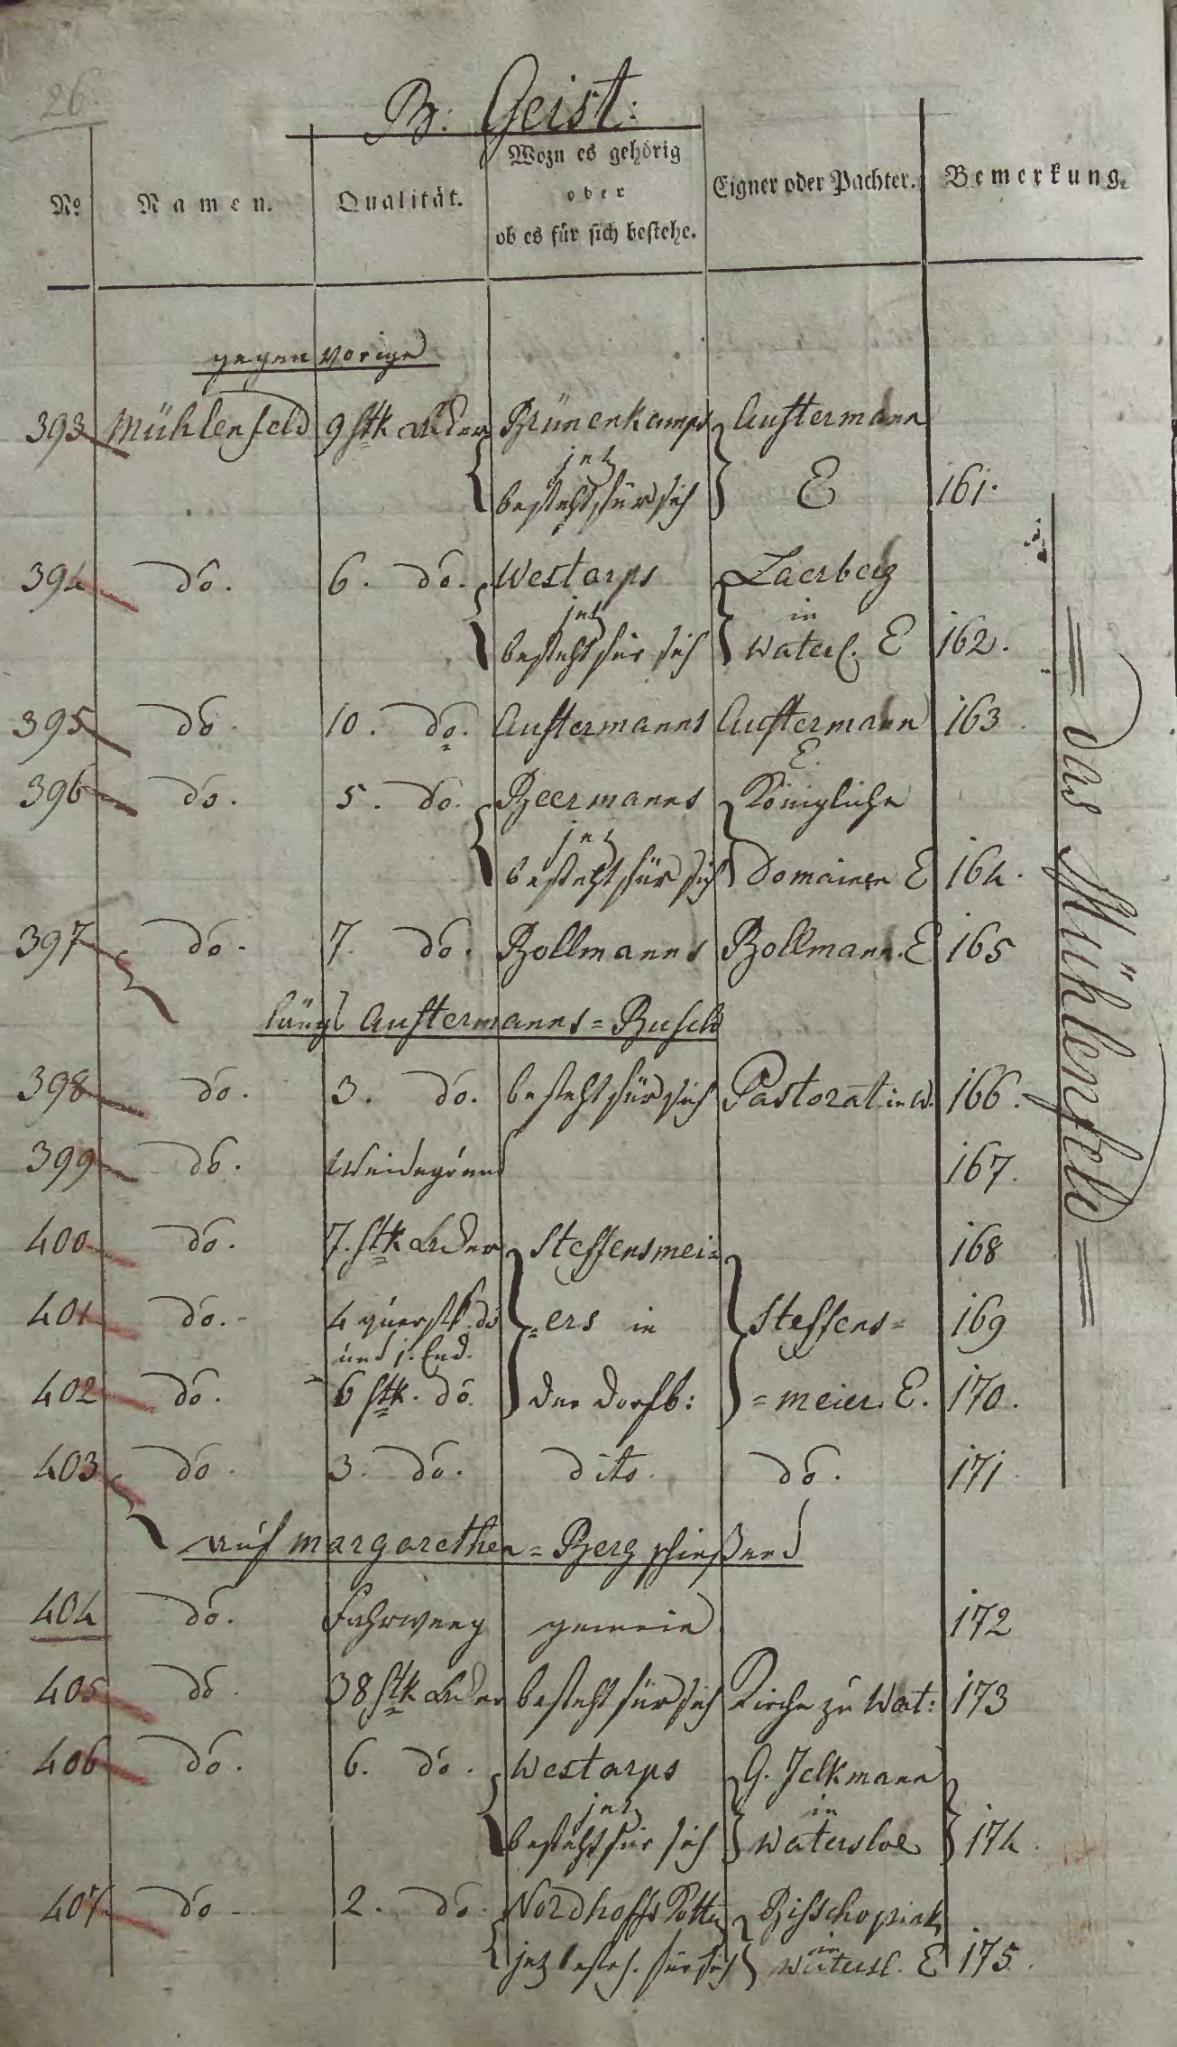 26.
B. Geist:
No Namen. Qualität. Wozu es gehörig oder ob es für sich bestehe. Eigner oder Pachter. Bemerkung.
gegen vorige
393 Mühlenfeld 9 stk Äcker Brünenkamps Austermann
jez
besteht für sich E 161.
394 do. 6. do. Westarps Laerberg
jez in
besteht für sich Watersl. E 162.
395 do. 10. do. Austermanns Austermann 163
E.
396 do. 5. do. Beermanns Königliche
jez
besteht für sich Domainen E 164.
397 do. 7. do. Bollmanns Bollmann. E 165
längs Austermanns = Busch
398 do. 3. do. besteht für sich Pastorat in W. 166.
399 do. Weidegrund 167.
400 do. 7. stk Äcker Steffensmei= 168
401 do. 4 querstk. do =ers in Steffens= 169
und 1. End.
402 do. 6 stk. do. der Dorfb: =meier. E. 170.
403 do. 3. do. dito. do. 171
auf Margarethen = Berg schießend
404 do. Fuhrweeg gemein 172
405 do. 38 stk Äcker besteht für sich Kirche zu Wat: 173
406 do. 6. do. Westarps G. Jelkmann
jez in
besteht für sich Watersloe 174.
407 do. 2. do. Nordhoffs Bisschopink
in
jez besteh. für sich Watersl. E 175.
= das Mühlenfeld =